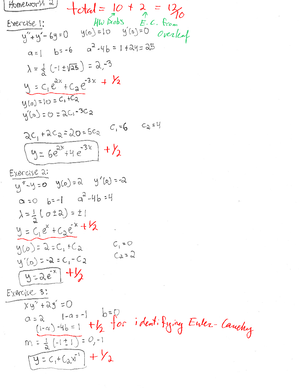 Homework 2
total = 10 + 2 = 12/10
HW Probs E.C. from overleaf
Exercise 1:
y''+y'-6y=0 y(0)=10 y'(0)=0
a=1 b=-6 a²-4b=1+24=25
λ=½(-1±√25)=2,-3
y=C₁e^{2x}+C₂e^{-3x} +1/2
y(0)=10=C₁+C₂
y'(0)=0=2C₁-3C₂
2C₁+2C₂=20=5C₂ C₁=6 C₂=4
y=6e^{2x}+4e^{-3x} +1/2
Exercise 2:
y''-y=0 y(0)=2 y'(0)=-2
a=0 b=-1 a²-4b=4
λ=½(0±2)=±1
y=C₁e^{x}+C₂e^{-x} +1/2
y(0)=2=C₁+C₂ C₁=0
y'(0)=-2=C₁-C₂ C₂=2
y=2e^{-x} +1/2
Exercise 3:
xy''+2y'=0
a=2 1-a=-1 b=0
(1-a)-4b=1 +1/2 for identifying Euler-Cauchy
m=½(-1±1)=0,-1
y=C₁+C₂x^{-1} +1/2